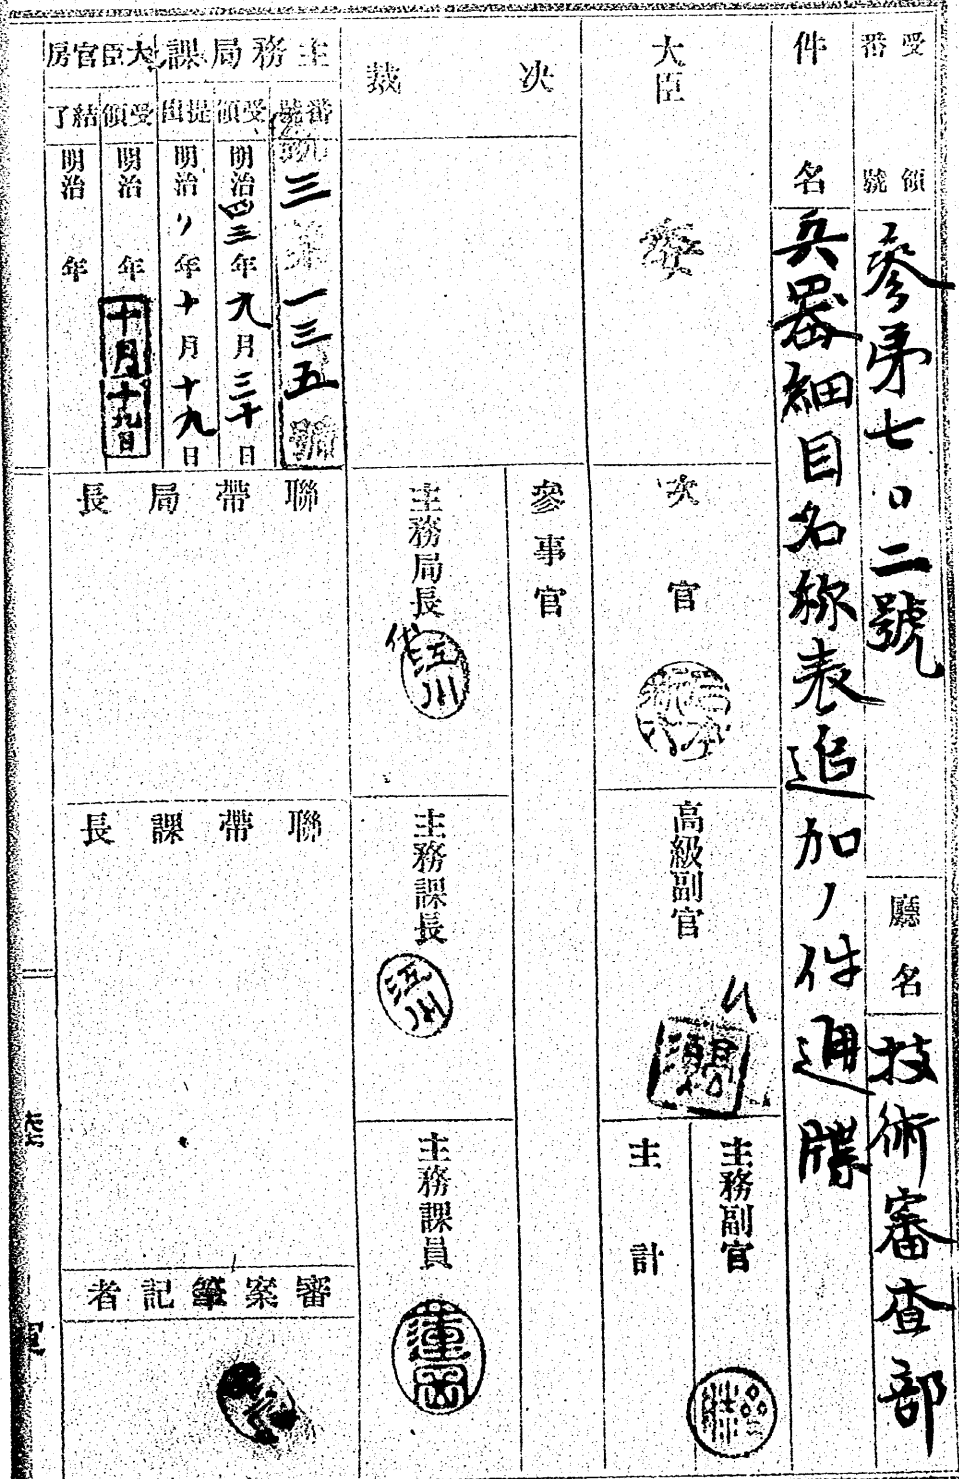 受領番號
參第七〇二號
廳名
技術審査部
件名
兵器細目名称表追加ノ件通牒
大臣
委
次官
高級副官
主務副官
主計
決裁
參事官
主務局長
代
江川
主務課長
江川
主務課員
主務局課
番號
三第一三五號
受領
明治四三年九月三十日
提出
明治〃年十月十九日
大臣官房
受領
明治 年十月十九日
結了
明治 年
聯帶局長
聯帶課長
審案筆記者